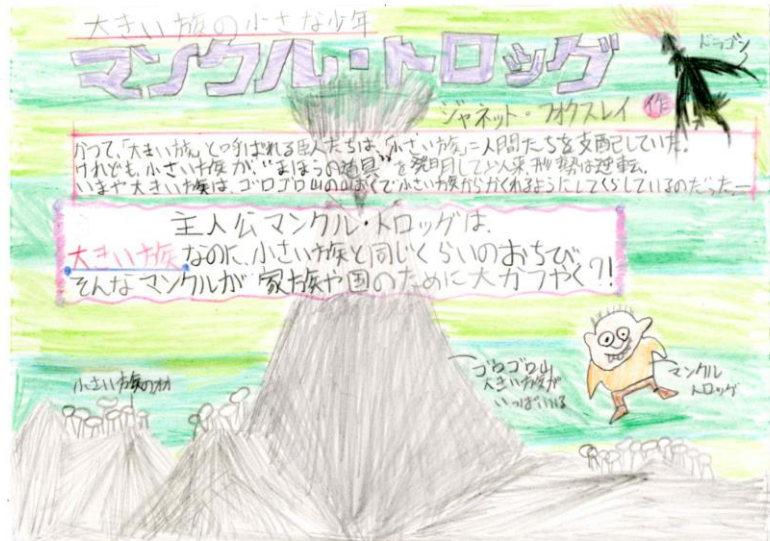 大きい族の小さな少年
マンクル・トロッグ
ドラゴン
ジャネット・フオクスレイ 作
かつて、「大きい族」と呼ばれる巨人たちは、「小さい族」=人間たちを支配していた。
けれども、小さい族が、"まほうの道具"を発明して以来、形勢は逆転。
いまや大きい族は、ゴロゴロ山の山おくで小さい族からかくれるようにしてくらしているのだった―
主人公マンクル・トロッグは、
大きい族なのに、小さい族と同じくらいのおちび。
そんなマンクルが家族や国のために大かつやく?!
小さい族の村
ゴロゴロ山
大きい族が
いっぱいいる
マンクル
トロッグ